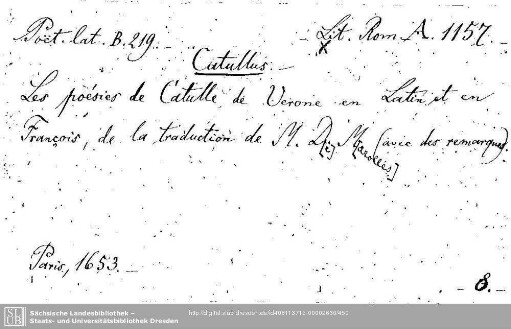 Poët. lat. B. 219.
Lit. Rom A. 1157.
Catullus.
Les poësies de Catulle de Verone en Latin et en
François, de la traduction de M. D[e] M[arolles] (avec des remarques).
Paris, 1653.
8.
SLUB
Sächsische Landesbibliothek –
Staats- und Universitätsbibliothek Dresden